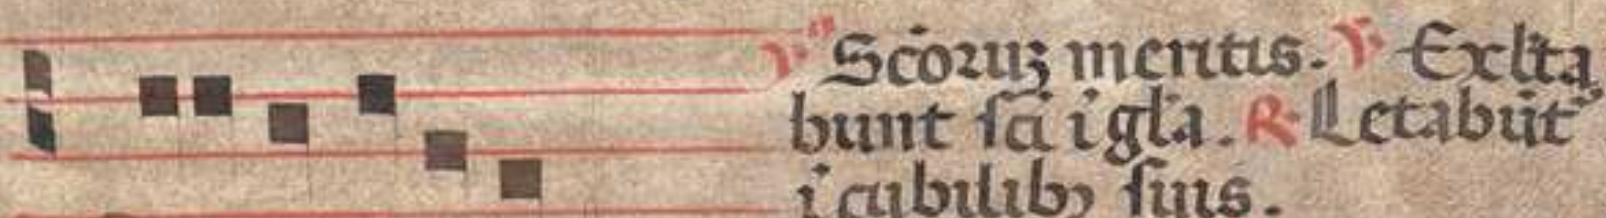 ℣ Sc̄oruꝫ meritis. ℣ Exl̄ta
bunt sc̄i ī gl̄a. ℟ Letabūt᷑
ī cubilibꝫ suis.